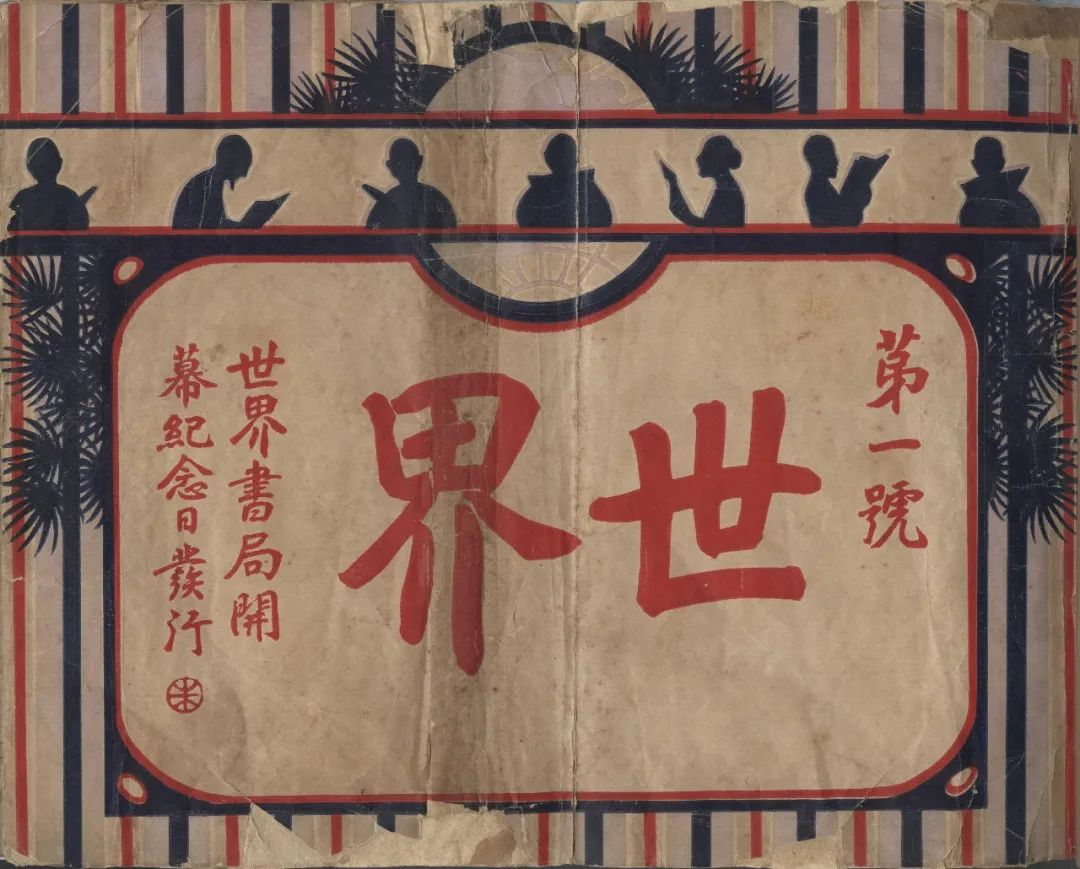 第一號
世界
世界書局開
幕紀念日發行